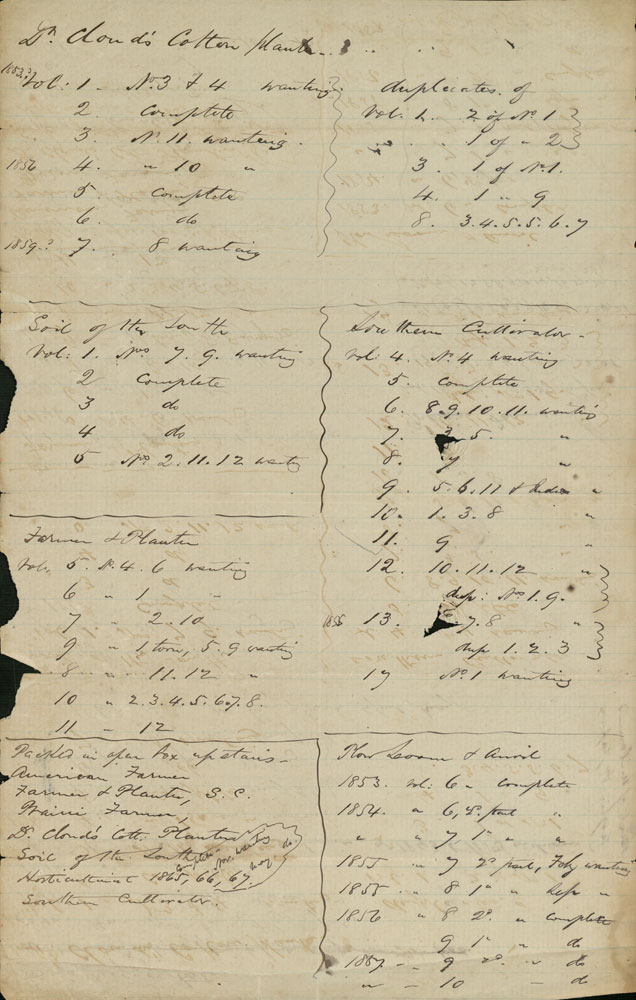 Dr. Cloud's Cotton Planter
1853? Vol: 1 - No. 3 & 4 wanting
2 complete
3. N. 11. wanting.
1856 4. " 10 "
5. complete
6. do
1859.? 7. 8 wanting
duplicates of
Vol: 1. 2 of No 1
" 1 of " 2
3. 1 of No 1.
4. 1 " 9
8. 3.4.5.5.6.7
Soil of the South
Vol: 1. Nos 7. 9. wanting
2 complete
3 do
4 do
5 No 2.11.12 wanting
Southern Cultivator -
Vol: 4. No 4 wanting
5. complete
6. 8.9.10.11. wanting
7. 5. "
8. 7 "
9. 5.6.11 & Index "
10. 1.3.8 "
11. 9 "
12. 10.11.12 "
dup: No 1.9.
1855 13. 7.8 "
dup 1.2.3
17 No 1 wanting
Farmer & Planter
Vol: 5. No. 4. 6 wanting
6 " 1 "
7 " 2.10.
9 " 1 torn, 5. 9 wanting
8 " 11.12 "
10 " 2.3.4.5.6.7.8.
11 - 12
Packed in open box upstairs -
American Farmer
Farmer & Planter, S.C.
Prairie Farmer,
Dr Cloud's Cott. Planter
Soil of the South
Horticulturist 1865, 66, 67.
complete
wanting
do.
Southern Cultivator.
Plow Loom & Anvil
1853. Vol: 6 - complete
1854. " 6, 2d part "
" " 7 1st " "
1855 - 7 2d part, Feby wanting
1855 - 8 1st " Sep "
1856 " 8 2d. " complete
9 1st " do
1857 - 9 2d. " do
" - 10 - do